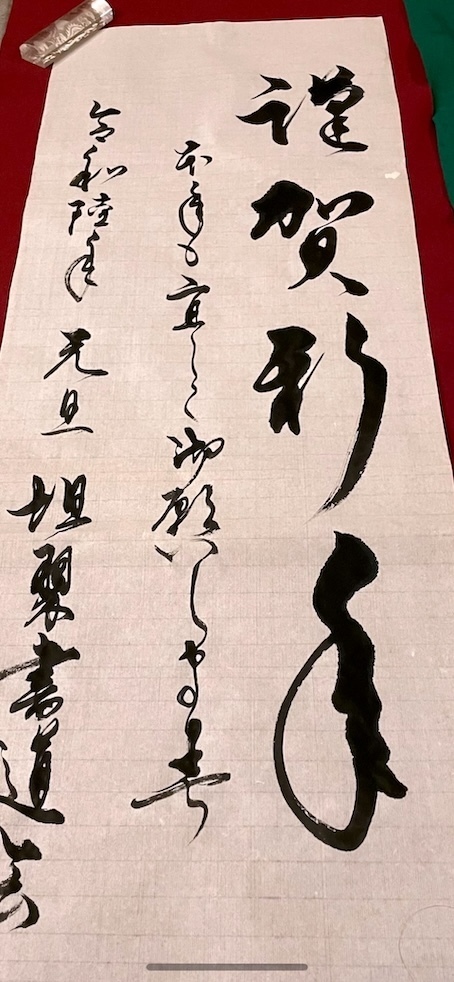 謹賀新年
本年も宜しく御願いします
令和陸年 元旦 書道会